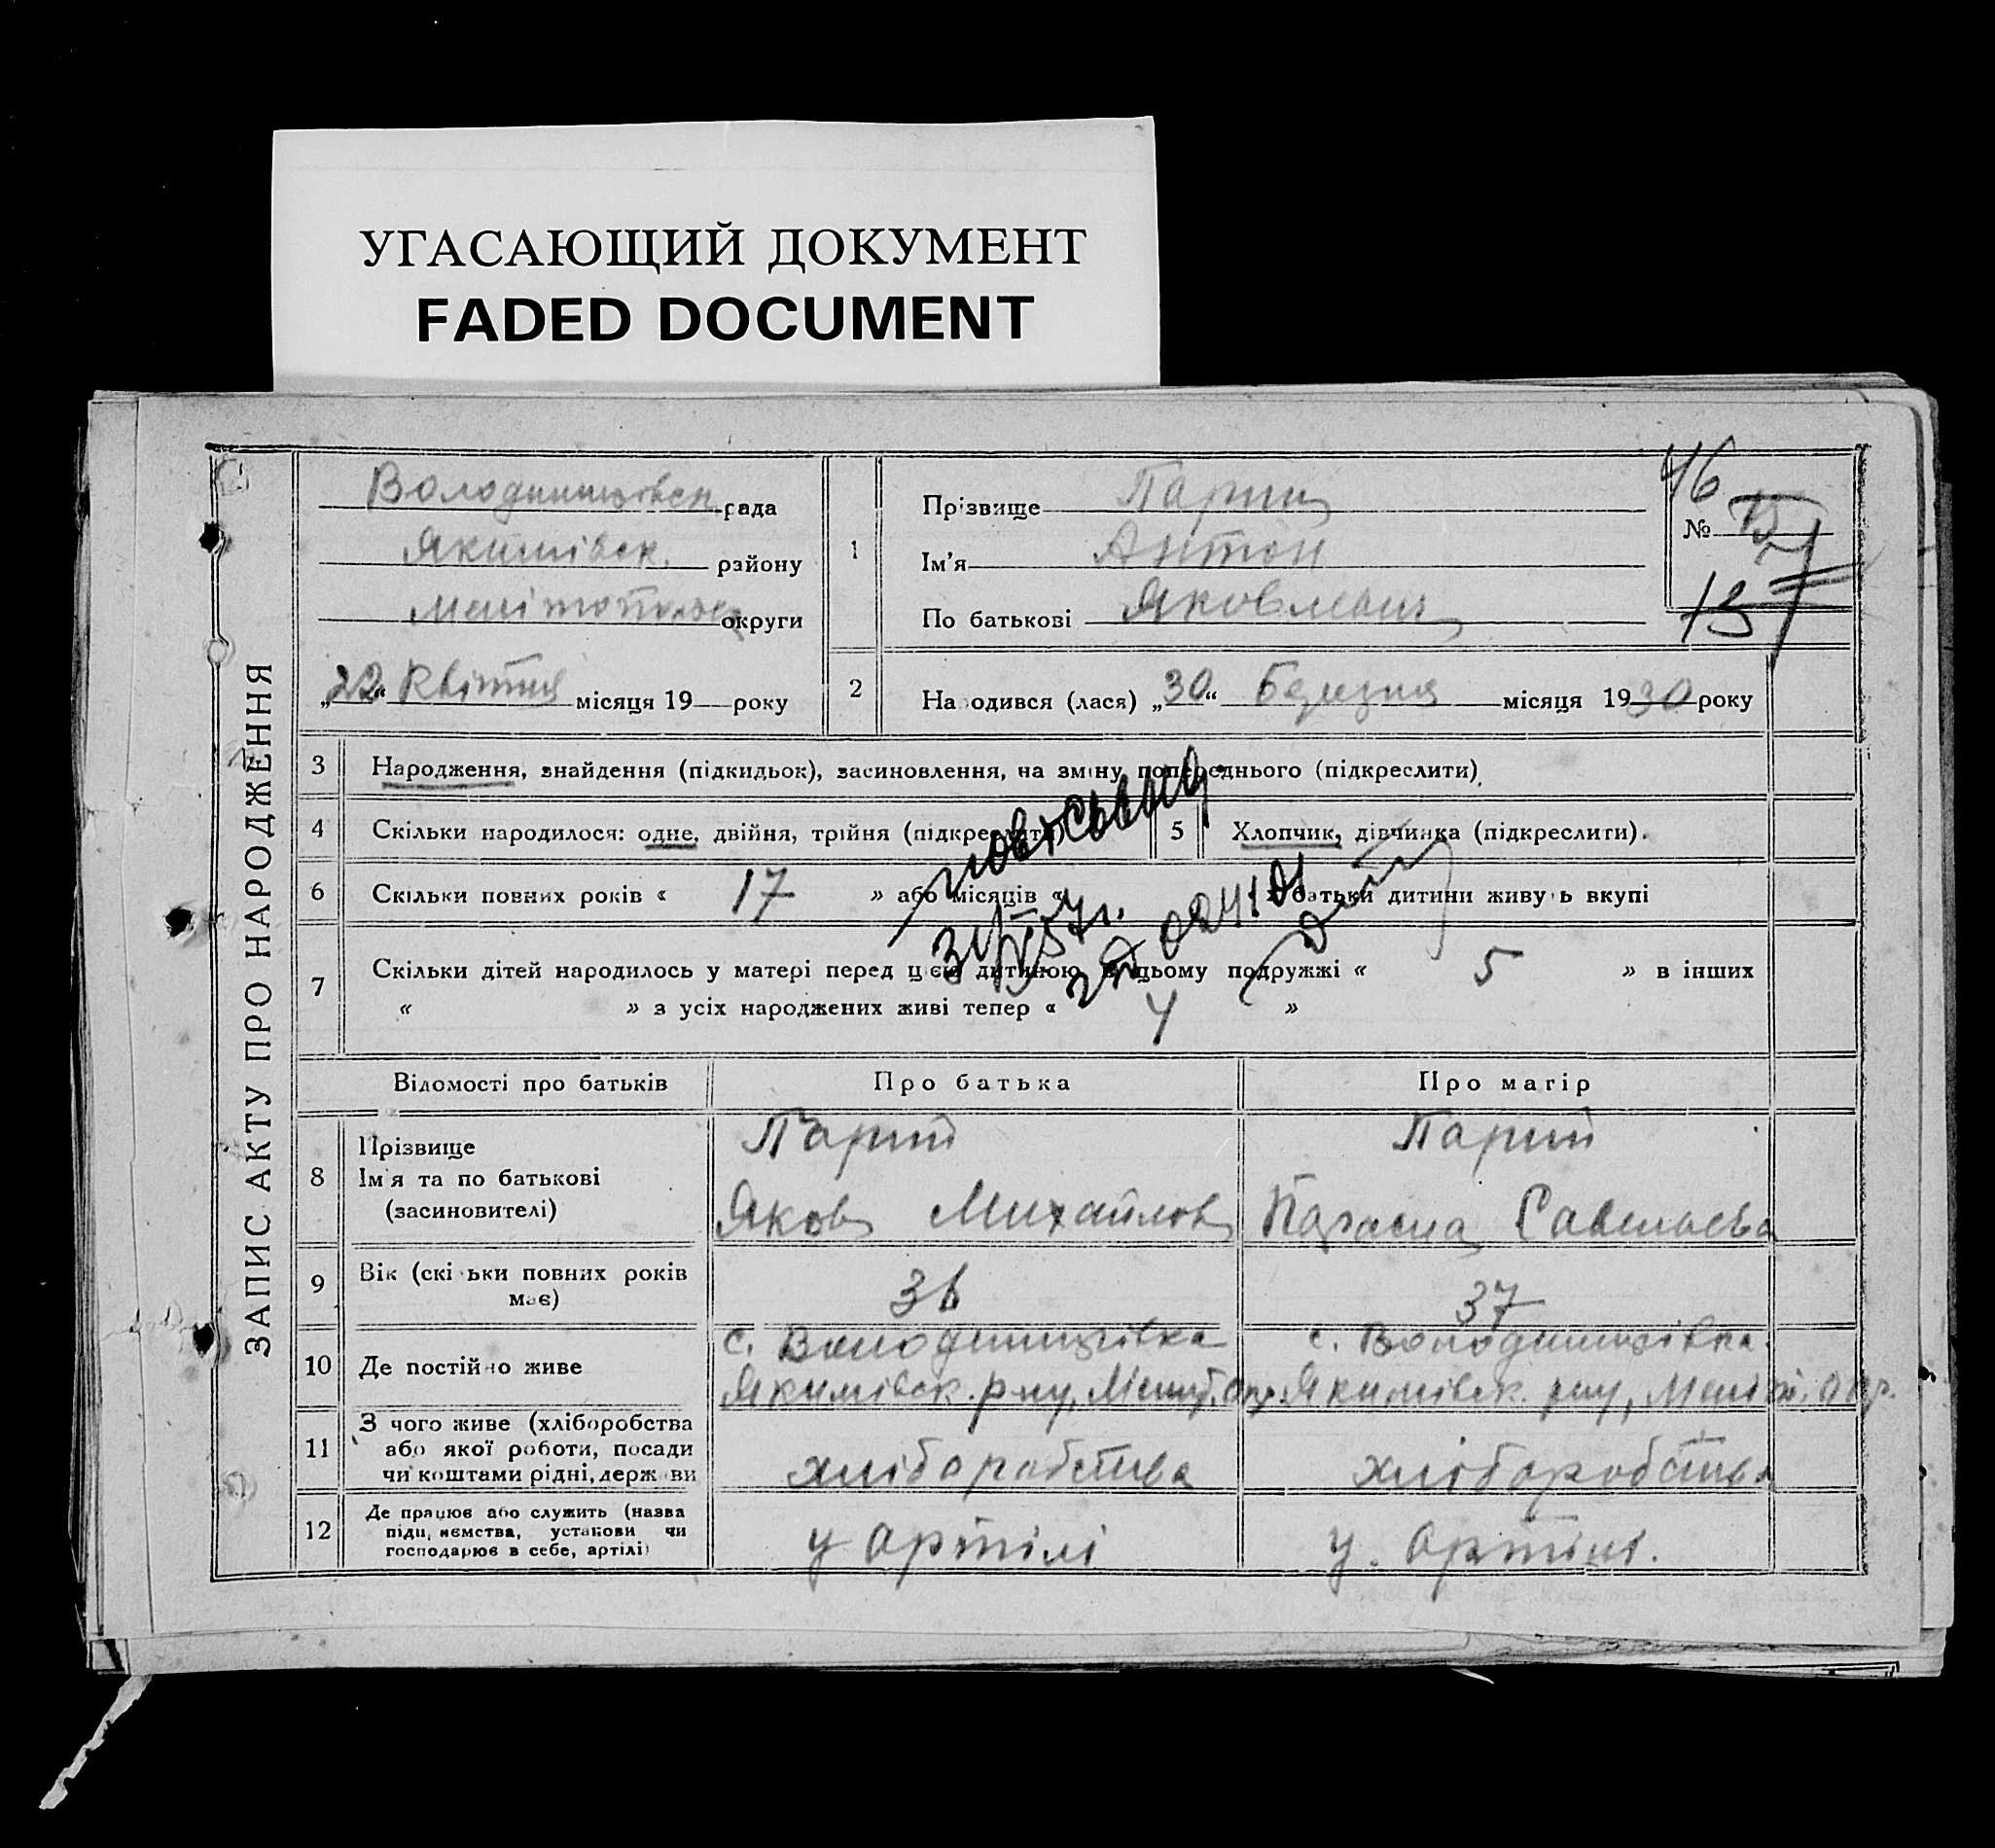 УГАСАЮЩИЙ ДОКУМЕНТ
FADED DOCUMENT
ЗАПИС АКТУ ПРО НАРОДЖЕННЯ
рада
Якимівск. району
округи
„22“ Квітня місяця 19 року
1
Прізвище Парий
Ім'я Антон
По батькові Яковлевич
46
№
13
2
Народився (лася) „30“ Березня місяця 1930 року
3 Народження, знайдення (підкидьок), засиновлення, на зміну попереднього (підкреслити)
4 Скільки народилося: одне, двійня, трійня (підкреслити)
5 Хлопчик, дівчинка (підкреслити).
6 Скільки повних років « 17 » або місяців « батьки дитини живуть вкупі
7 Скільки дітей народилось у матері перед цією дитиною в цьому подружжі « 5 » в інших
« » з усіх народжених живі тепер « 4 »
Відомості про батьків Про батька Про матір
8 Прізвище
Ім'я та по батькові
(засиновителі)
Парий
Яков Михайлов
Парий
Параска Савельева
9 Вік (скільки повних років має) 36 37
10 Де постійно живе
с. Володимирівка
Якимівск. р-ну, Меліт. окр.
с. Володимирівка
Якимівск. р-ну, Меліт. окр.
11 З чого живе (хліборобства
або якої роботи, посади
чи коштами рідні, держави
хліборобства
хліборобства
12 Де працює або служить (назва
підприємства, установи чи
господарює в себе, артілі)
у артілі
у. артілі.